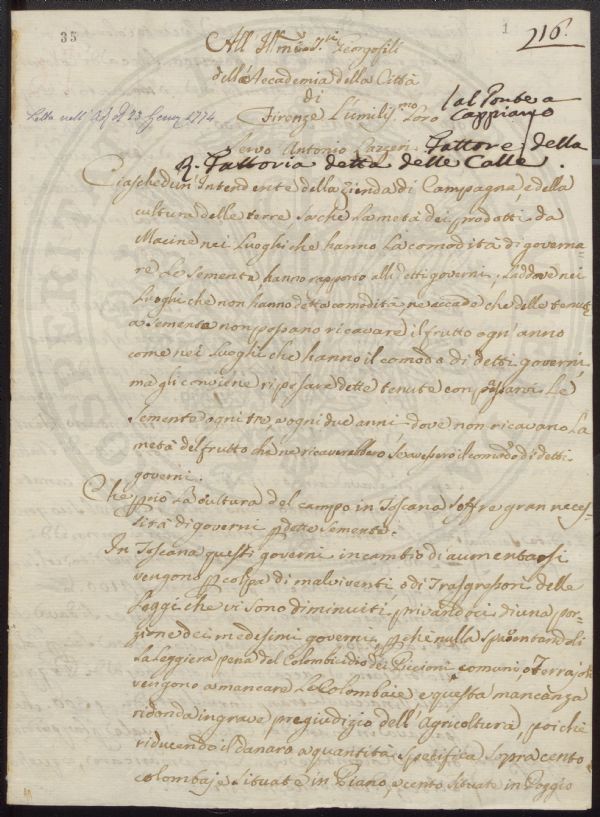 35
1
216.
All' Ill.mi Sig.ri Georgofili
dell'Accademia della Città
di
Firenze L'umiliss.mo Loro
Letta nell' Ad.a de 23 Genn.o 1774
Servo Antonio Lazzeri Fattore della
al Ponte a
Cappiano
R. Fattoria detta delle Calle.
Ciaschedun Intendente della zienda di Campagna, e della
cultura delle terre sà che la metà dei prodotti da
Macine nei Luoghi che hanno la comodità di governa
re le sementa hanno rapporto alli detti governi, laddove nei
Luoghi che non hanno detta comodità, ne accade che delle tenute
a sementa non possano ricavare il frutto ogn' anno
come nei Luoghi che hanno il comodo di detti governi,
mà gli conviene riposare dette tenute con Le
Semente ogni tre, o ogni due anni dove non ricavano La
metà del frutto che ne ricaverebbero se avessero il comodo di detti
governi.
Che però La cultura del campo in Toscana soffre gran neces=
sità di governi p dette semente.
In Toscana questi governi in cambio di aumentarsi
vengono p colpa di malviventi o di Trasgressori delle
Leggi che vi sono diminuiti, privandoci di una por=
zione dei medesimi governi, p che nulla spaventandoli
La Leggiera pena del Colombicidio dei Piccioni comuni, o Terrajoli
vengono a mancare Le Colombaie e questa mancanza
ridonda in grave pregiudizio dell'Agricoltura, poiche
riducendo il danaro a quantità specifica sopra cento
colombaje situate in Piano, e cento situate in Poggio